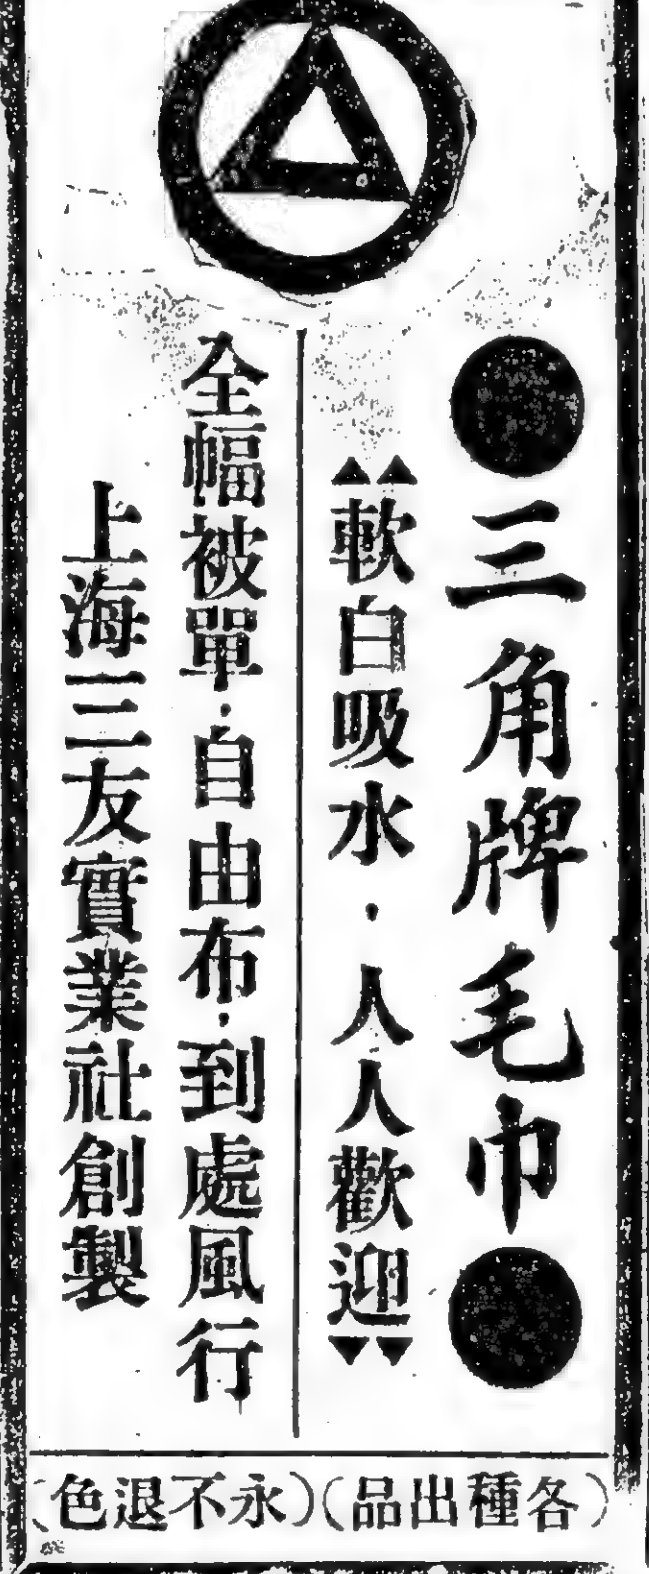 三角牌毛巾
軟白吸水．人人歡迎
全幅被單．自由布．到處風行
上海三友實業社創製
(各種出品)(永不退色)